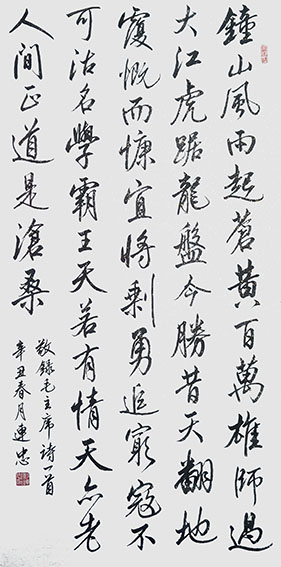 鐘山風雨起蒼黄百萬雄師過
大江虎踞龍盤今勝昔天翻地
覆慨而慷宜將剩勇追窮寇不
可沽名學霸王天若有情天亦老
人間正道是滄桑
敬錄毛主席詩一首
辛丑春月連忠